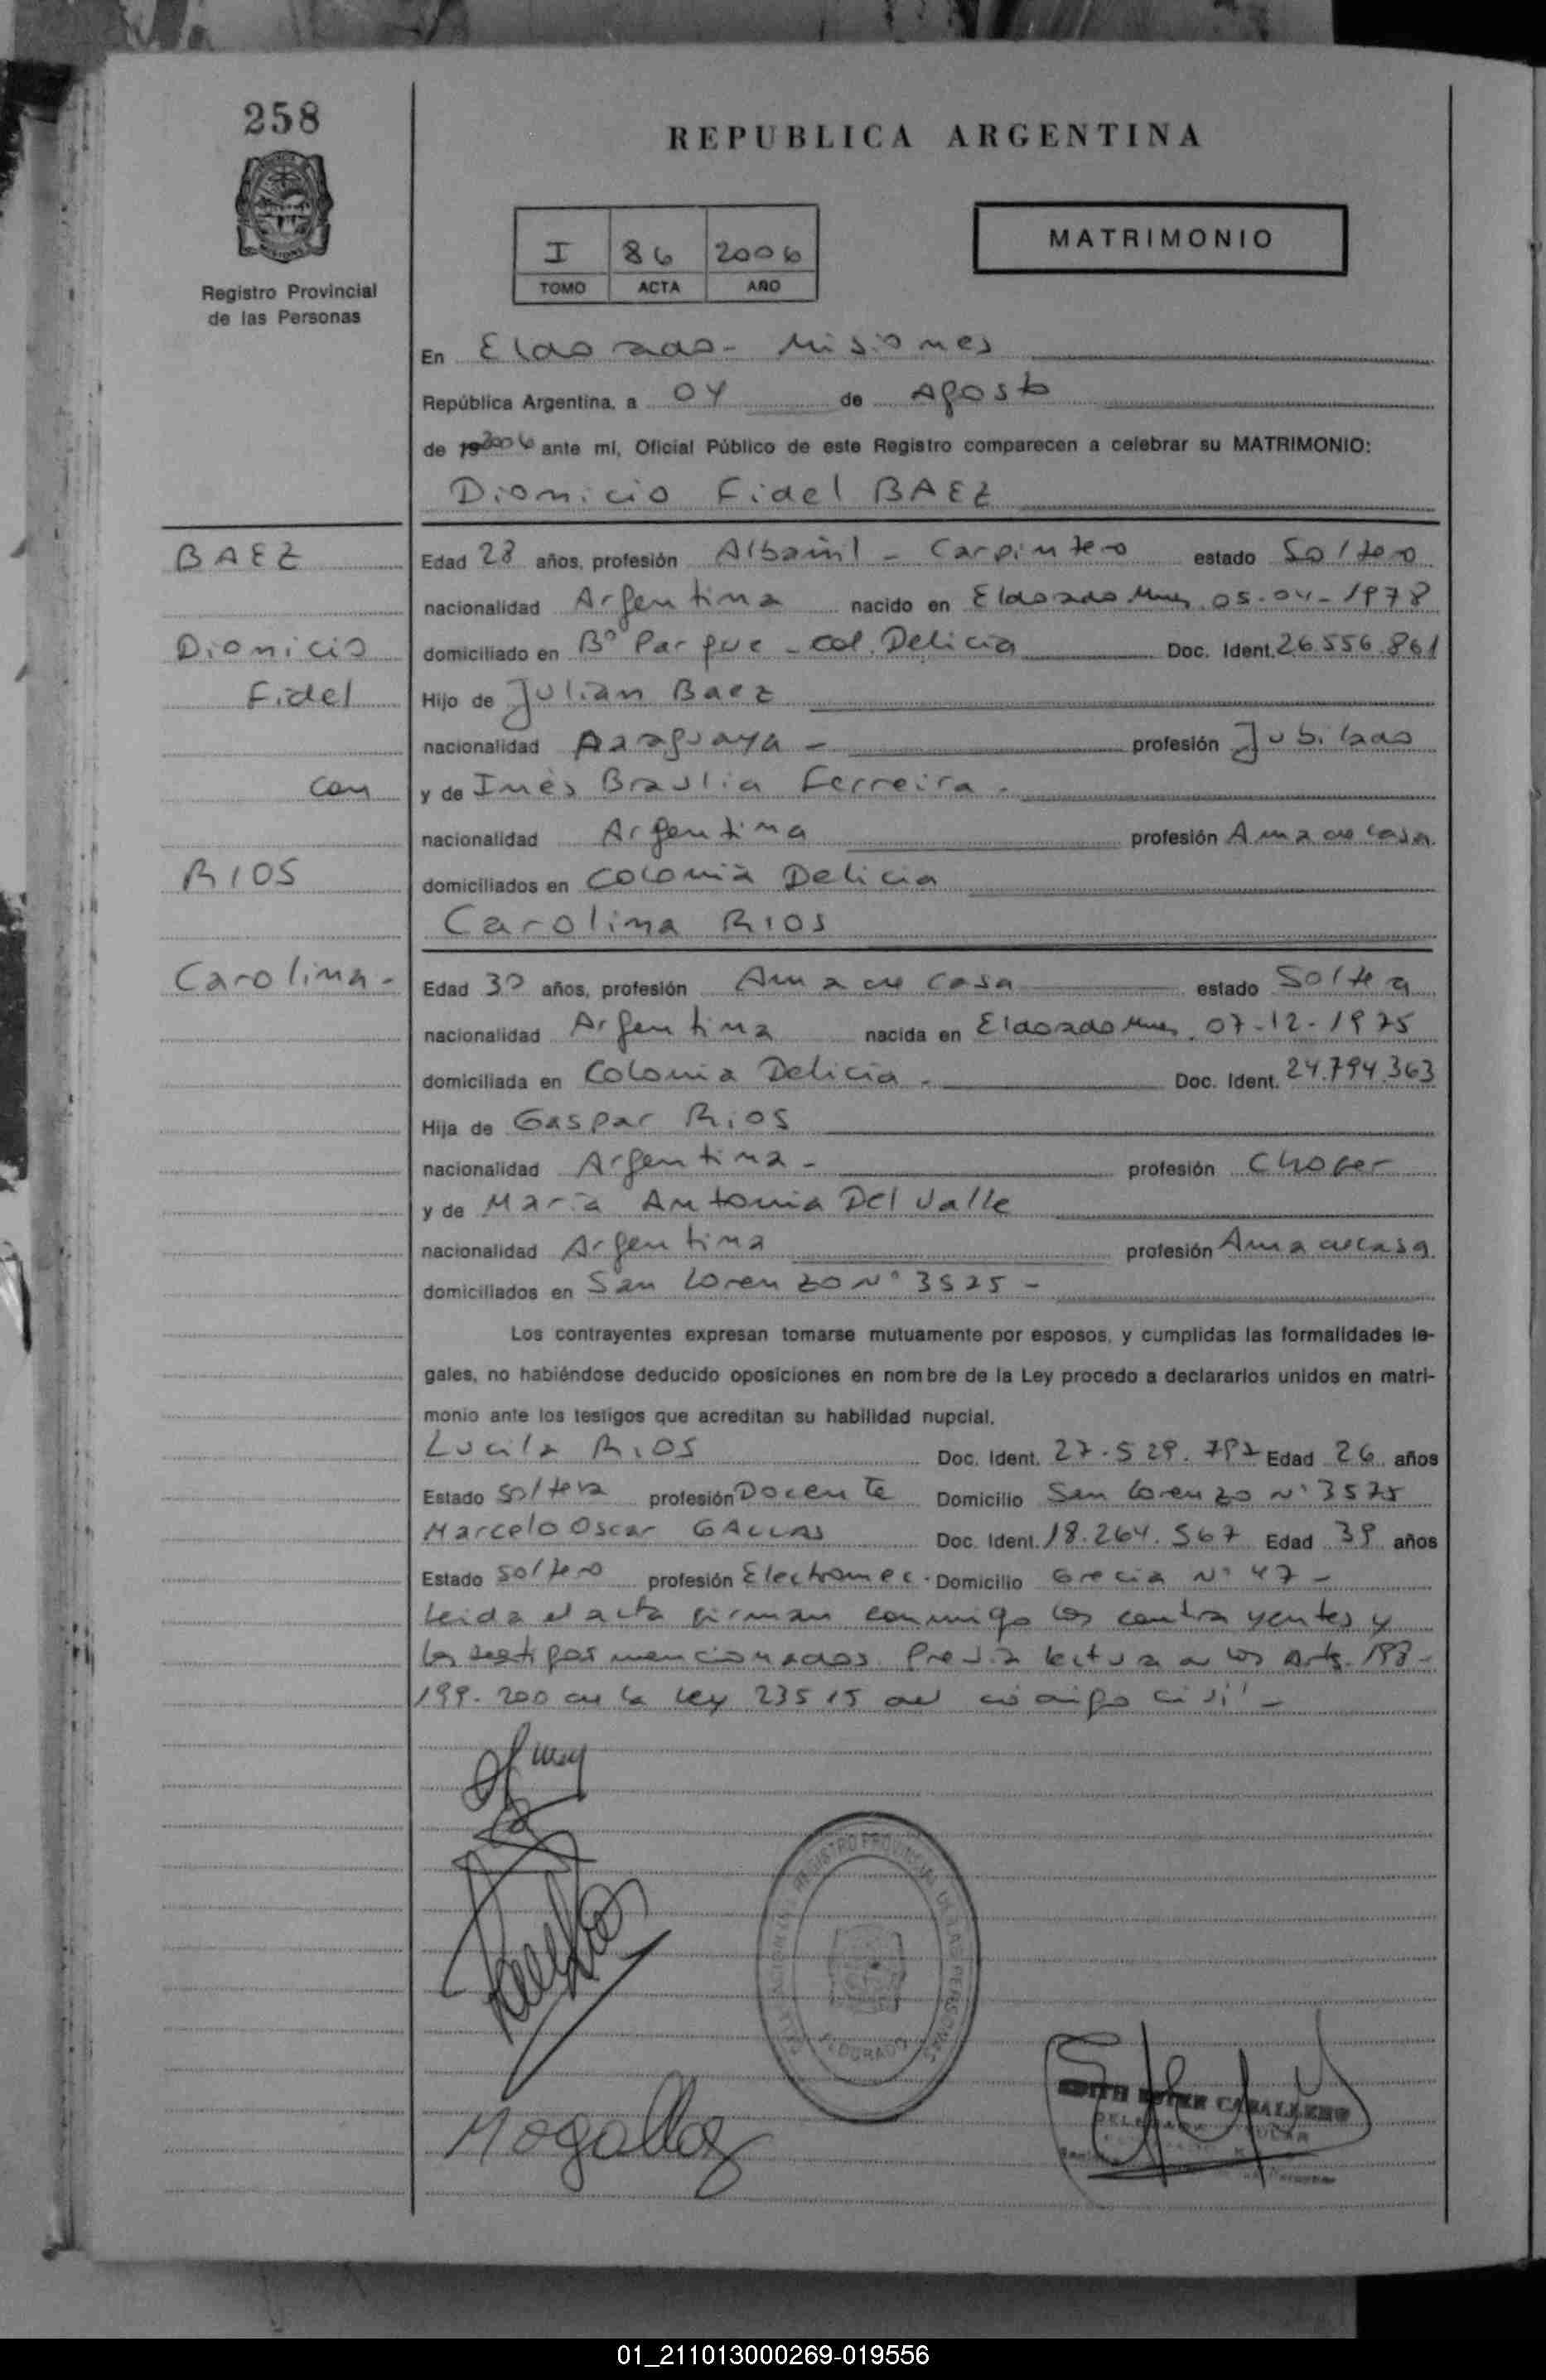 258
REPUBLICA ARGENTINA
I 86 2006
TOMO ACTA AÑO
MATRIMONIO
Registro Provincial
de las Personas
En Eldorado - Misiones
República Argentina, a 04 de Agosto
de 19 2006 ante mí, Oficial Público de este Registro comparecen a celebrar su MATRIMONIO:
Dionicio Fidel BAEZ
BAEZ
Edad 28 años, profesión Albañil - Carpintero estado Soltero
nacionalidad Argentina nacido en Eldorado Mnes. 05-04-1978
Dionicio
domiciliado en Bº Parque - Col. Delicia Doc. Ident. 26.556.861
Fidel
Hijo de Julian Baez
nacionalidad Paraguaya - profesión Jubilado
con
y de Inés Braulia Ferreira -
nacionalidad Argentina profesión Ama de casa
RIOS
domiciliados en Colonia Delicia
Carolina RIOS
Carolina -
Edad 30 años, profesión Ama de casa estado Soltera
nacionalidad Argentina nacida en Eldorado Mnes. 07-12-1975
domiciliada en Colonia Delicia - Doc. Ident. 24.794.363
Hija de Gaspar Rios
nacionalidad Argentina - profesión Chofer
y de Maria Antonia Del Valle
nacionalidad Argentina profesión Ama de casa
domiciliados en San Lorenzo Nº 3525 -
Los contrayentes expresan tomarse mutuamente por esposos, y cumplidas las formalidades le-
gales, no habiéndose deducido oposiciones en nombre de la Ley procedo a declararlos unidos en matri-
monio ante los testigos que acreditan su habilidad nupcial.
Lucila RIOS Doc. Ident. 27.529.797 Edad 26 años
Estado soltera profesión Docente Domicilio San Lorenzo Nº 3575
Marcelo Oscar GALLAS Doc. Ident. 18.264.567 Edad 39 años
Estado soltero profesión Electromec. Domicilio Grecia Nº 47 -
Leida el acta firman conmigo los contrayentes y
los testigos mencionados. Previa lectura a los Arts. 198-
199-200 de la Ley 23515 del código civil -
REGISTRO PROVINCIAL DE LAS PERSONAS
ELDORADO
Mogallas
EDITH ESTER CABALLERO
DELEGADA TITULAR
01_211013000269-019556